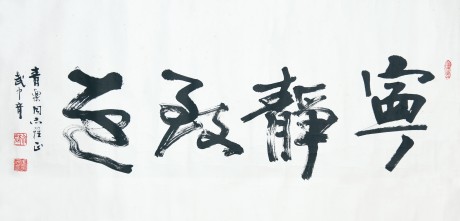 寧靜致遠
同志雅正
武中奇